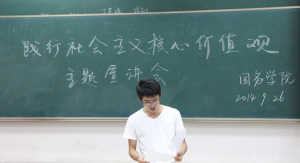 践行社会主义核心价值观
主题宣讲会
国务学院
2014.9.26